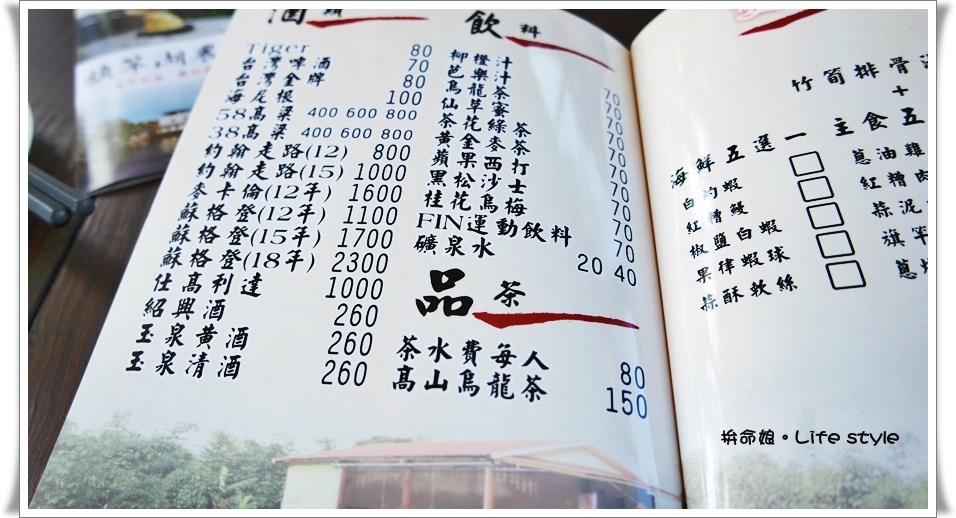 酒類
Tiger 80
台灣啤酒 70
台灣金牌 80
海尼根 100
58高粱 400 600 800
38高粱 400 600 800
約翰走路(12) 800
約翰走路(15) 1000
麥卡倫(12年) 1600
蘇格登(12年) 1100
蘇格登(15年) 1700
蘇格登(18年) 2300
仕高利達 1000
紹興酒 260
玉泉黃酒 260
玉泉清酒 260
飲料
柳橙汁 70
芭樂汁 70
烏龍茶 70
仙草蜜 70
茶花綠茶 70
黃金麥茶 70
蘋果西打 70
黑松沙士 70
桂花烏梅 70
FIN運動飲料 70
礦泉水 20 40
品茶
茶水費每人 80
高山烏龍茶 150
竹筍排骨
+
海鮮五選一
白灼蝦
紅糟鰻
椒鹽白蝦
果律蝦球
蒜酥軟絲
主食五
蔥油雞
紅糟肉
蒜泥
旗
蔥
拚命娘。Life style